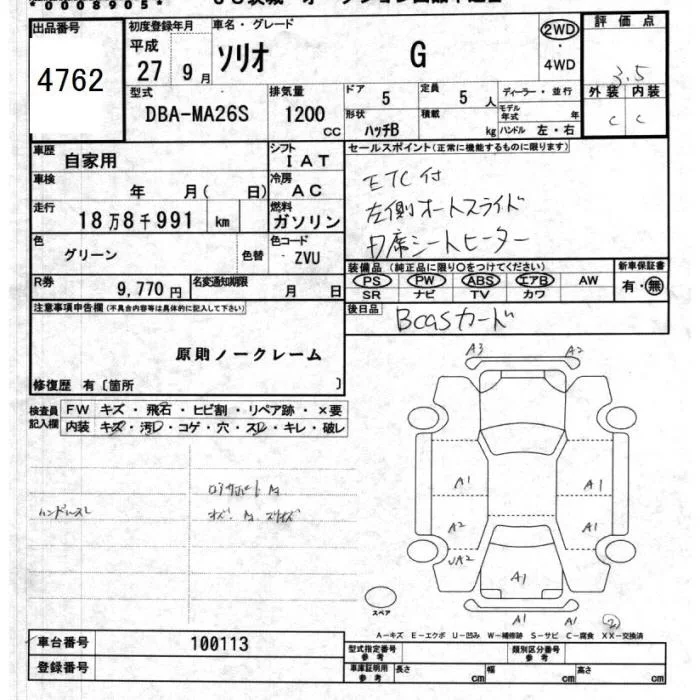 *0008905*
出品番号
4762
初度登録年月
平成
27 9月
車名・グレード
ソリオ G
2WD
・
4WD
評価点
3.5
外装 内装
C C
型式
DBA-MA26S
排気量
1200
CC
ドア 5
形状
ハッチB
定員 5 人
積載 kg
ディーラー・並行
モデル
年式 年
ハンドル 左・右
車歴
自家用
シフト
IAT
セールスポイント(正常に機能するものに限ります)
ETC付
左側オートスライド
車検
年 月( 日)
冷房
AC
走行
18万8千991 km
燃料
ガソリン
シートヒーター
色
グリーン
色替
色コード
ZVU
装備品(純正品に限り○をつけてください)
PS PW ABS エアB AW
SR ナビ TV カワ
新車保証書
有・無
R券
9,770円
名変通知期限
月 日
後日品
Bcasカード
注意事項申告欄(不具合内容等は具体的に記入して下さい)
原則ノークレーム
修復歴 有〔箇所 〕
検査員
記入欄
FW キズ・飛石・ヒビ割・リペア跡・×要
内装 キズ・汚レ・コゲ・穴・スレ・キレ・破レ
A3 A2
A1 A1
A2 A1
A1
A1 A1 2
スペア
A―キズ E―エクボ U―凹み W―補修跡 S―サビ C―腐食 XX―交換済
車台番号
100113
登録番号
型式指定番号
参考
類別区分番号
参考
車庫証明用
参考
長さ cm 幅 cm 高さ cm